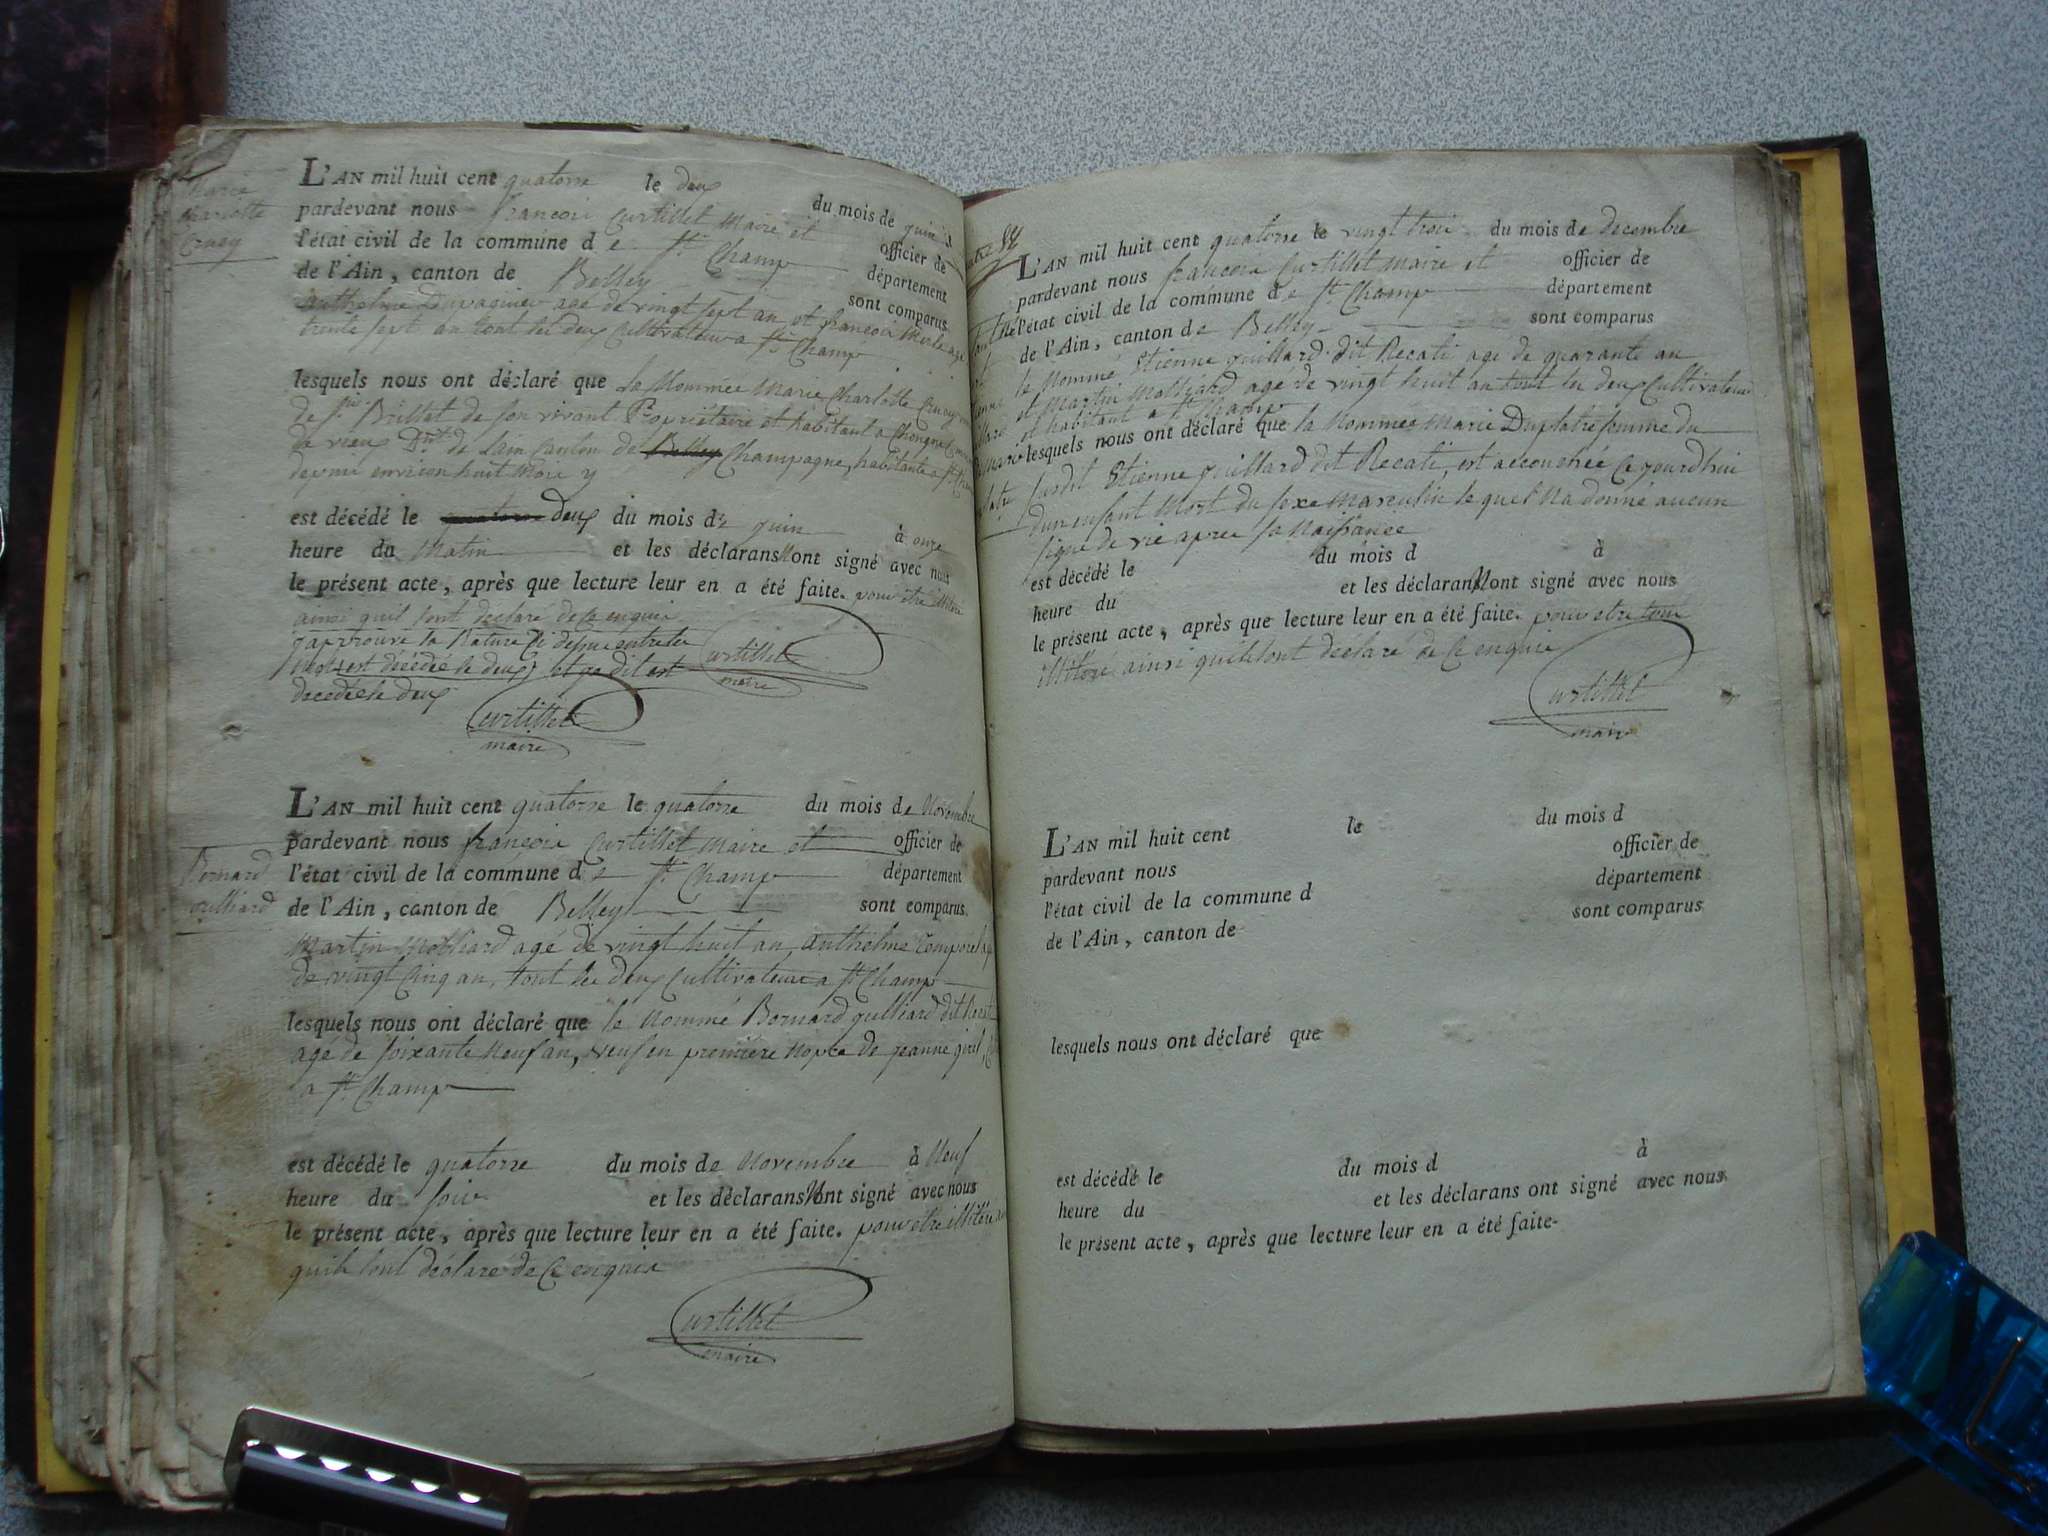 Marie
Charlotte
Cruzy
L'AN mil huit cent quatorze le deux du mois de juin
pardevant nous françois Curtillet Maire et officier de
l'état civil de la commune de St. Champ département
de l'Ain, canton de Belley sont comparus
anthelme age de vingt sept an et françois Merle age
trente sept an tout les deux Cultivateur a St. Champ
lesquels nous ont déclaré que la Nommée Marie Charlotte Cruzy
de Brillat de son vivant Propriétaire et habitant a
de vieu Dpt. de Lain canton de Belley Champagne, habitante a St.
depuis environ huit Mois y
est décédé le quatorze deux du mois de juin à onze
heure du Matin et les déclarans Nont signé avec nous
le présent acte, après que lecture leur en a été faite. pour être illitéré
ainsi quil lont declaré de Ce enquis
japprouve la Rature Ci dessus entre les
Mots est décédée le deux et ge dit est
decedée le deux
Curtillet
maire
Curtillet
maire
L'AN mil huit cent quatorze le quatorze du mois de Novembre
pardevant nous françois Curtillet Maire et officier de
l'état civil de la commune de St. Champ département
de l'Ain, canton de Belley sont comparus
Bernard
guilliard
Martin Molliard agé de vingt huit an anthelme
de vingt Cinq an, tout les deux Cultivateur a St. Champ
lesquels nous ont déclaré que le Nommé Bernard guilliard dit
agé de soixante Neuf an, veuf en première Nopce de jeanne
a St. Champ
est décédé le quatorze du mois de Novembre à Neuf
heure du soir et les déclarans Nont signé avec nous
le présent acte, après que lecture leur en a été faite. pour etre illitéré
quils lont déclaré de Ce enquis
Curtillet
maire
L'AN mil huit cent quatorze le vingt trois du mois de decembre
pardevant nous françois Curtillet Maire et officier de
l'état civil de la commune de St. Champ département
de l'Ain, canton de Belley sont comparus
le Nommé Etienne guillard dit Recati agé de quarante an
et Martin Molliard agé de vingt huit an tout les deux Cultivateur
et habitant a St. Champ
lesquels nous ont déclaré que la Nommée Marie Duplatre femme du
susdit Etienne guillard dit Recati, est accouchée Ce jourdhui
dun enfant Mort du sexe masculin le quel Na donné aucun
signe de vie apres sa Naissance
est décédé le du mois d à
heure du et les déclarans Nont signé avec nous
le présent acte, après que lecture leur en a été faite. pour etre tous
illitéré ainsi quils lont declaré de Ce enquis
Curtillet
maire
L'AN mil huit cent le du mois d
pardevant nous officier de
l'état civil de la commune d département
de l'Ain, canton de sont comparus
lesquels nous ont déclaré que
est décédé le du mois d à
heure du et les déclarans ont signé avec nous
le présent acte, après que lecture leur en a été faite.